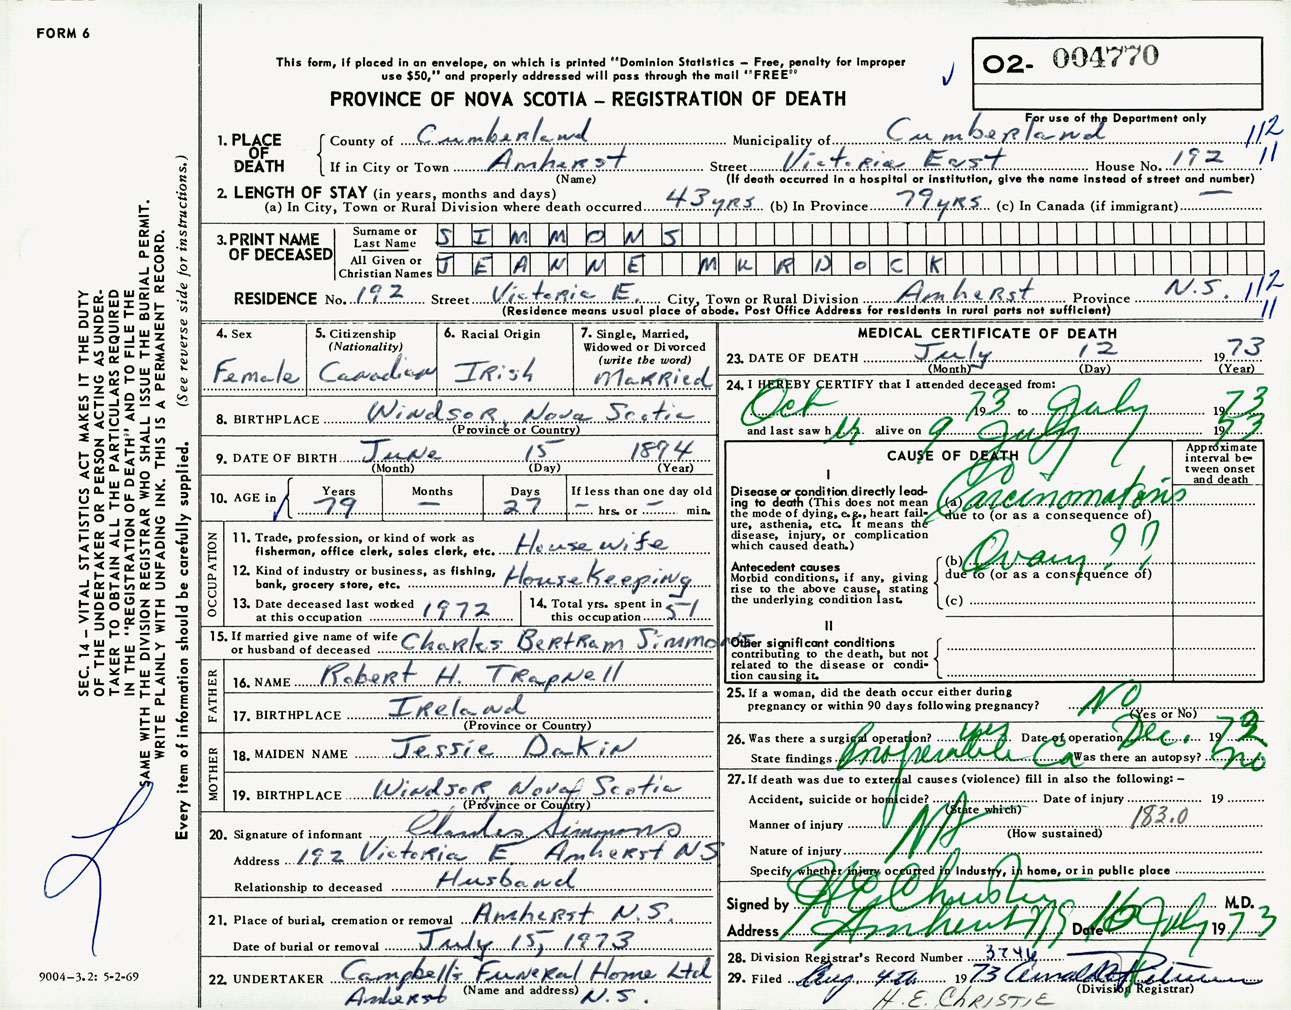 FORM 6
This form, if placed in an envelope, on which is printed "Dominion Statistics – Free, penalty for improper
use $50," and properly addressed will pass through the mail "FREE"
02- 004770
For use of the Department only
PROVINCE OF NOVA SCOTIA – REGISTRATION OF DEATH
1. PLACE OF DEATH
County of Cumberland Municipality of Cumberland 112
If in City or Town Amherst Street Victoria East House No. 192 11
(Name) (If death occurred in a hospital or institution, give the name instead of street and number)
2. LENGTH OF STAY (in years, months and days)
(a) In City, Town or Rural Division where death occurred 43 yrs (b) In Province 79 yrs (c) In Canada (if immigrant) —
3. PRINT NAME OF DECEASED
Surname or Last Name SIMMONS
All Given or Christian Names JEANNE MURDOCK
RESIDENCE No. 192 Street Victoria E. City, Town or Rural Division Amherst Province N.S. 112
(Residence means usual place of abode. Post Office Address for residents in rural parts not sufficient) 11
4. Sex
Female
5. Citizenship
(Nationality)
Canadian
6. Racial Origin
Irish
7. Single, Married,
Widowed or Divorced
(write the word)
Married
8. BIRTHPLACE Windsor, Nova Scotia
(Province or Country)
9. DATE OF BIRTH June 15 1894
(Month) (Day) (Year)
10. AGE in
Years 79
Months —
Days 27
If less than one day old
— hrs. or — min.
OCCUPATION
11. Trade, profession, or kind of work as
fisherman, office clerk, sales clerk, etc. Housewife
12. Kind of industry or business, as fishing,
bank, grocery store, etc. Housekeeping
13. Date deceased last worked
at this occupation 1972
14. Total yrs. spent in
this occupation 51
15. If married give name of wife
or husband of deceased Charles Bertram Simmons
FATHER
16. NAME Robert H. Trapnell
17. BIRTHPLACE Ireland
(Province or Country)
MOTHER
18. MAIDEN NAME Jessie Dakin
19. BIRTHPLACE Windsor, Nova Scotia
(Province or Country)
20. Signature of informant Charles Simmons
Address 192 Victoria E. Amherst NS
Relationship to deceased Husband
21. Place of burial, cremation or removal Amherst N.S.
Date of burial or removal July 15, 1973
22. UNDERTAKER Campbell's Funeral Home Ltd
(Name and address)
Amherst N.S.
MEDICAL CERTIFICATE OF DEATH
23. DATE OF DEATH July 12 1973
(Month) (Day) (Year)
24. I HEREBY CERTIFY that I attended deceased from:
Oct 1973 to July 1973
and last saw her alive on 9 July 1953
CAUSE OF DEATH
Approximate interval between onset and death
I
Disease or condition directly leading to death (This does not mean
the mode of dying, e.g., heart failure, asthenia, etc. It means the
disease, injury, or complication
which caused death.)
(a) Carcinomatosis
due to (or as a consequence of)
Antecedent causes
Morbid conditions, if any, giving
rise to the above cause, stating
the underlying condition last.
(b) Ovary ??
due to (or as a consequence of)
(c)
II
Other significant conditions
contributing to the death, but not
related to the disease or condition causing it.
25. If a woman, did the death occur either during
pregnancy or within 90 days following pregnancy? No
(Yes or No)
26. Was there a surgical operation? yes Date of operation Dec. 1972
State findings Inoperable Ca Was there an autopsy? no
27. If death was due to external causes (violence) fill in also the following: –
Accident, suicide or homicide? Date of injury 19
(State which)
Manner of injury 183.0
(How sustained)
NA
Nature of injury
Specify whether injury occurred in industry, in home, or in public place
Signed by HE Christie M.D.
Address Amherst NS Date 16 July 1973
28. Division Registrar's Record Number 3746
29. Filed Aug 4th 1973
(Division Registrar)
H.E. CHRISTIE
SEC. 14 – VITAL STATISTICS ACT MAKES IT THE DUTY
OF THE UNDERTAKER OR PERSON ACTING AS UNDER-
TAKER TO OBTAIN ALL THE PARTICULARS REQUIRED
IN THE "REGISTRATION OF DEATH" AND TO FILE THE
SAME WITH THE DIVISION REGISTRAR WHO SHALL ISSUE THE BURIAL PERMIT.
WRITE PLAINLY WITH UNFADING INK. THIS IS A PERMANENT RECORD.
Every item of information should be carefully supplied. (See reverse side for instructions.)
9004-3.2: 5-2-69